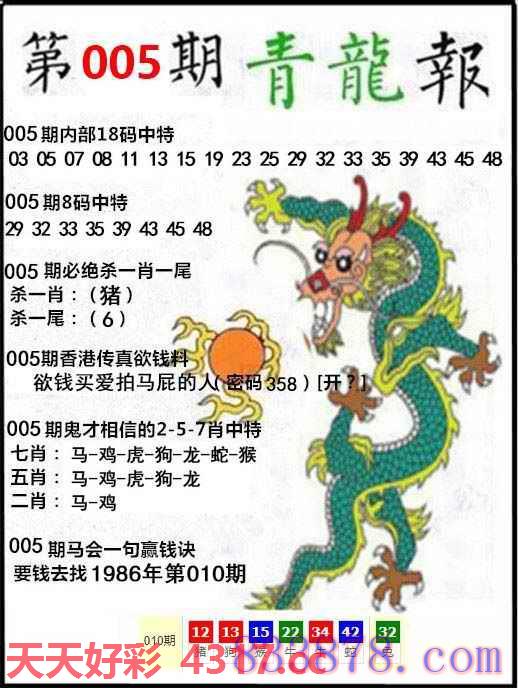 第005期青龍報
005期内部18码中特
03 05 07 08 11 13 15 19 23 25 29 32 33 35 39 43 45 48
005期8码中特
29 32 33 35 39 43 45 48
005期必绝杀一肖一尾
杀一肖：（猪）
杀一尾：（6）
005期香港传真欲钱料
欲钱买爱拍马屁的人(密码358)[开？]
005期鬼才相信的2-5-7肖中特
七肖：马-鸡-虎-狗-龙-蛇-猴
五肖：马-鸡-虎-狗-龙
二肖：马-鸡
005期马会一句赢钱诀
要钱去找1986年第010期
010期 12 13 15 22 34 42 32
猪 狗 猴 牛 蛇 兔
天天好彩 4387.cc